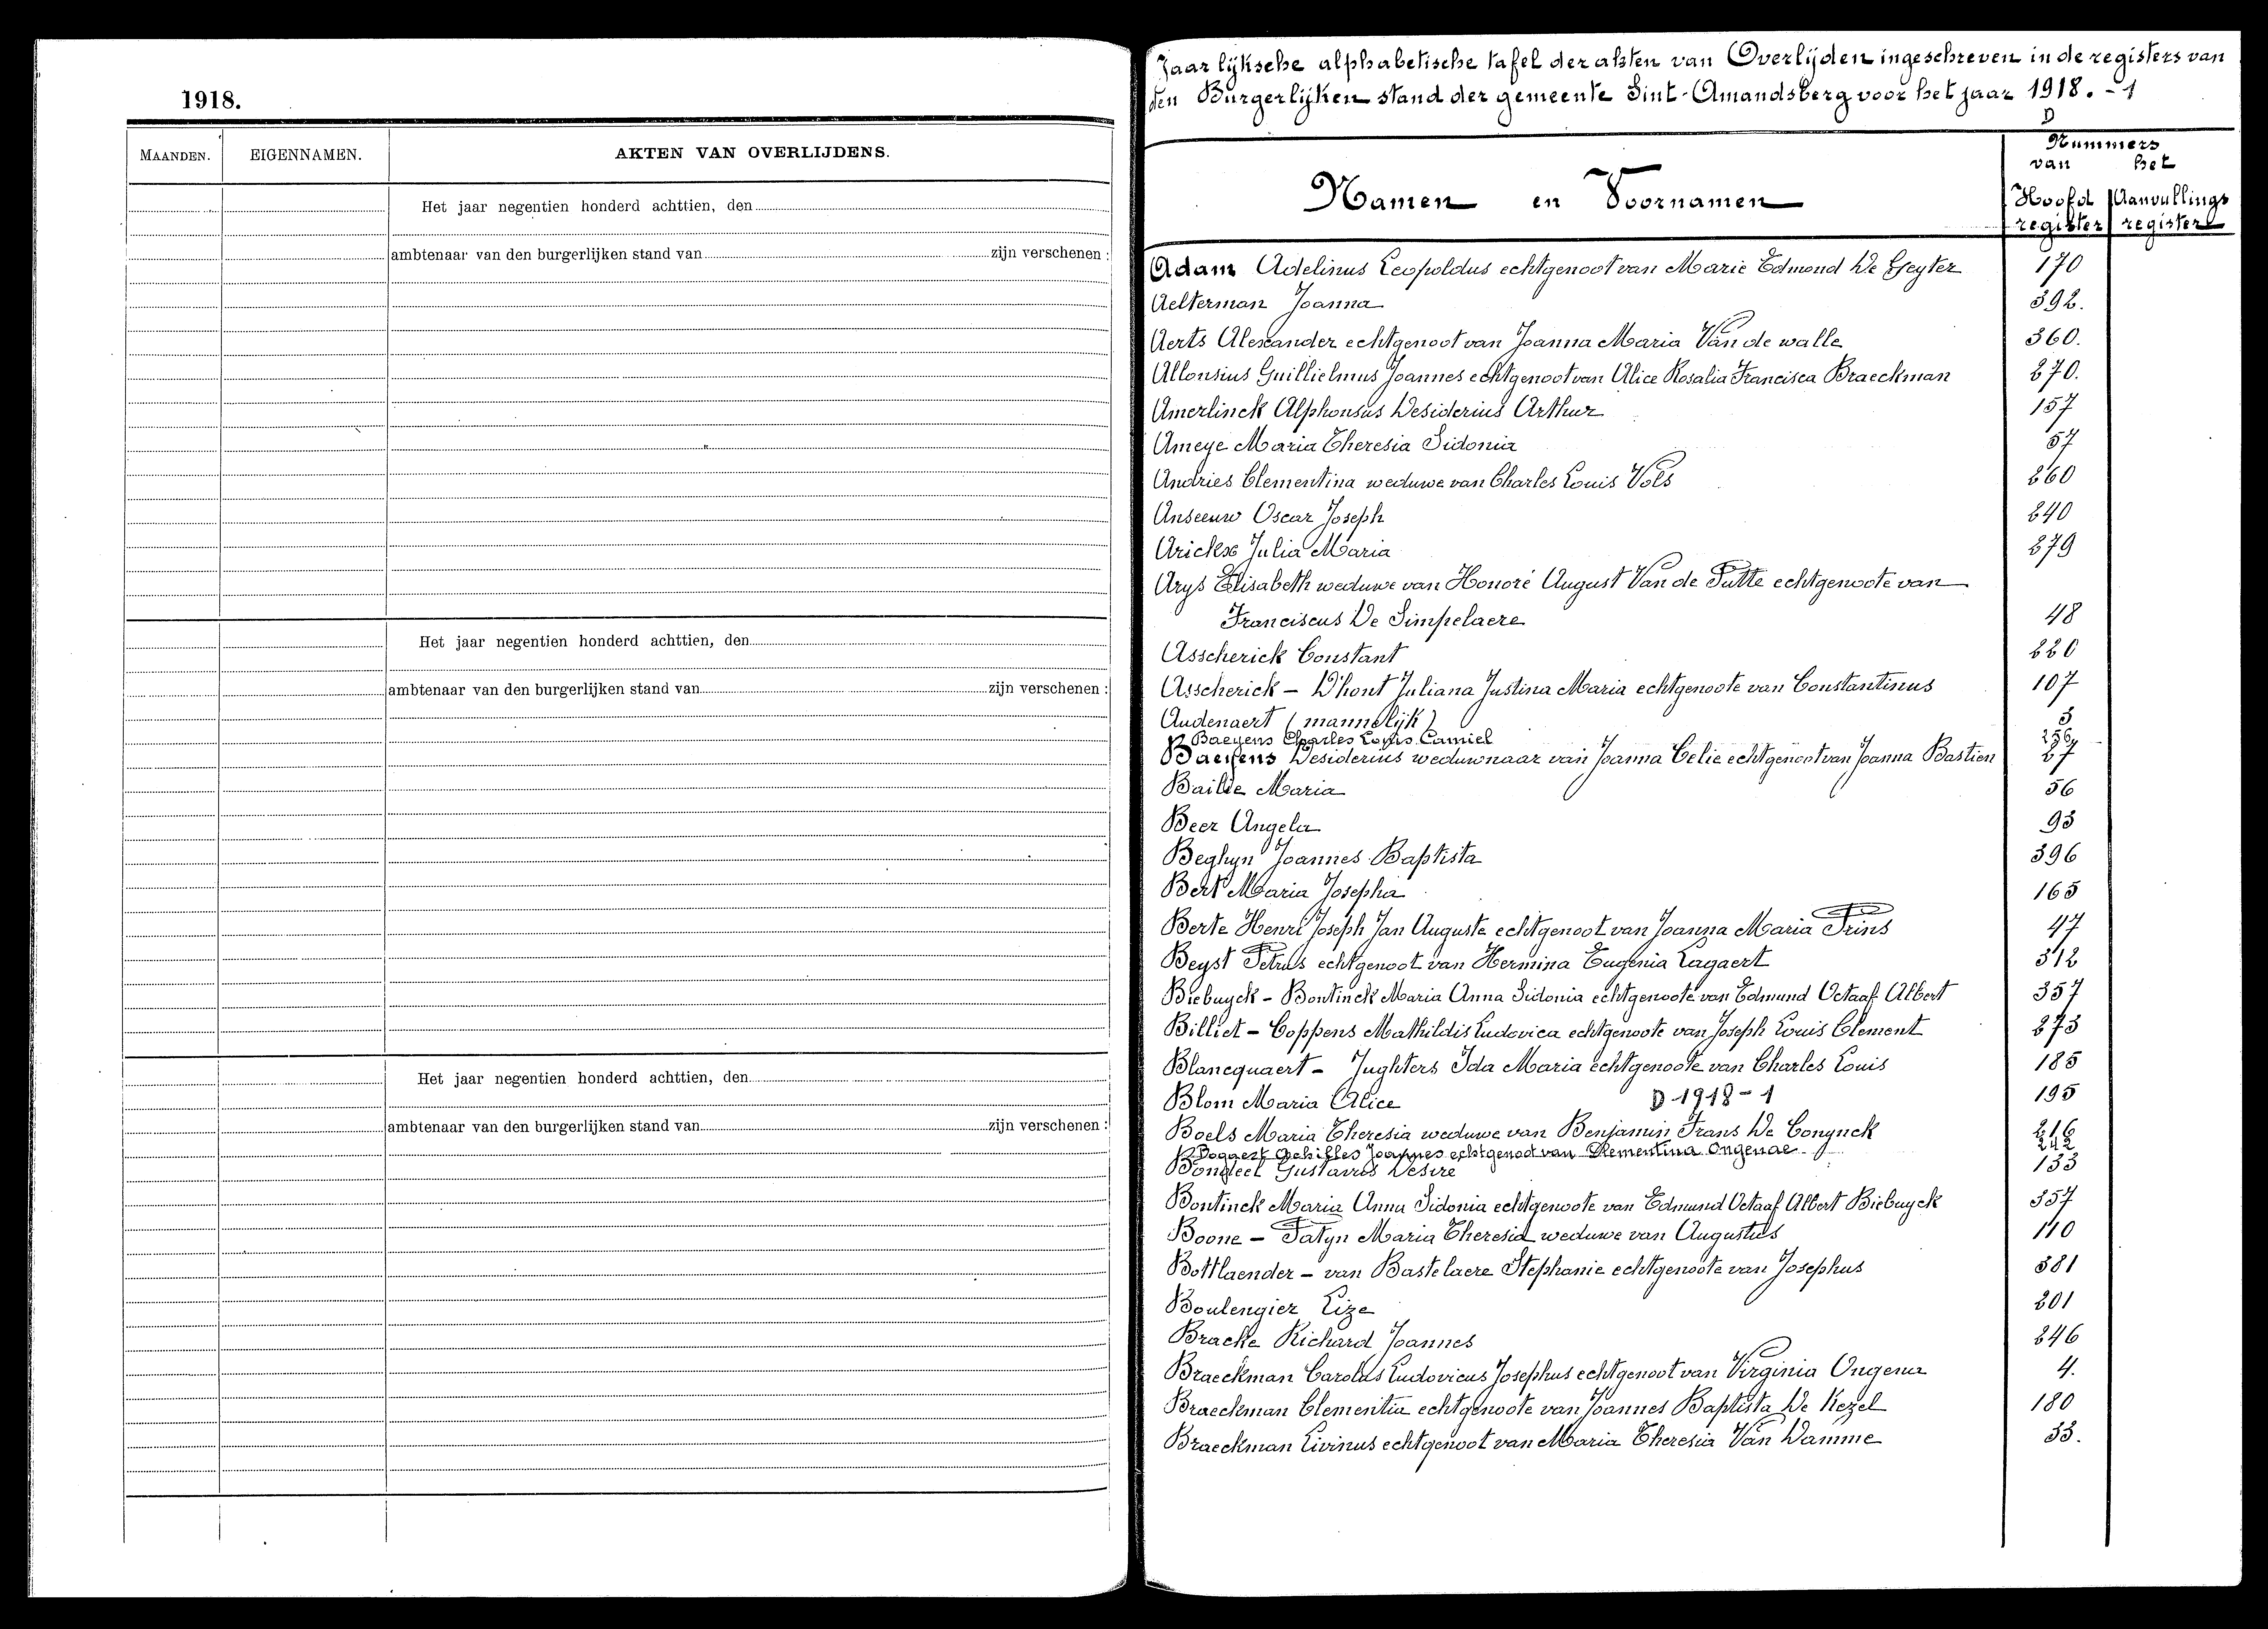 1918.
MAANDEN. EIGENNAMEN. AKTEN VAN OVERLIJDENS.
Het jaar negentien honderd achttien, den
ambtenaar van den burgerlijken stand van zijn verschenen :
Het jaar negentien honderd achttien, den
ambtenaar van den burgerlijken stand van zijn verschenen :
Het jaar negentien honderd achttien, den
ambtenaar van den burgerlijken stand van zijn verschenen :
Jaarlijksche alphabetische tafel der akten van Overlijden ingeschreven in de registers van
den Burgerlijken stand der gemeente Sint-Amandsberg voor het jaar 1918. - 1
D
Nummers
van het
Namen en Voornamen Hoofd Aanvullings
register register
Adam Adelinus Leopoldus echtgenoot van Marie Edmond De Geyter 170
Aelterman Joanna 392.
Aerts Alexander echtgenoot van Joanna Maria Van de walle 360.
Allonsius Guillielmus Joannes echtgenoot van Alice Rosalia Francisca Braeckman 270.
Amerlinck Alphonsus Desiderius Arthur 157
Ameye Maria Theresia Sidonia 57
Andries Clementina weduwe van Charles Louis Vols 260
Anseeuw Oscar Joseph 240
Arickx Julia Maria 279
Arys Elisabeth weduwe van Honoré August Van de Putte echtgenoote van
Franciscus De Simpelaere 48
Asscherick Constant 220
Asscherick - D'hont Juliana Justina Maria echtgenoote van Constantinus 107
Audenaert (mannelijk) 3
Baeyens Charles Louis Camiel 256
Baeyens Desiderius weduwnaar van Joanna Celie echtgenoot van Joanna Bastien 27
Bailde Maria 56
Beer Angela 93
Beghyn Joannes Baptista 396
Bert Maria Josepha 165
Berte Henri Joseph Jan Auguste echtgenoot van Joanna Maria Prins 47
Beyst Petrus echtgenoot van Hermina Eugenia Lagaert 312
Biebuyck - Bontinck Maria Anna Sidonia echtgenoote van Edmund Octaaf Albert 357
Billiet - Coppens Mathildis Ludovica echtgenoote van Joseph Louis Clement 273
Blancquaert - Jughters Ida Maria echtgenoote van Charles Louis 185
Blom Maria Alice D 1918 - 1 195
Boels Maria Theresia weduwe van Benjamin Frans De Conynck 216
Bogaert Achilles Joannes echtgenoot van Clementina Ongenae 242
Bongleel Gustavus Desire 133
Bontinck Maria Anna Sidonia echtgenoote van Edmund Octaaf Albert Biebuyck 357
Boone - Patyn Maria Theresia weduwe van Augustus 110
Bottlaender - van Bastelaere Stephanie echtgenoote van Josephus 381
Boulengier Lize 201
Bracke Richard Joannes 246
Braeckman Carolus Ludovicus Josephus echtgenoot van Virginia Ongena 4.
Braeckman Clementia echtgenoote van Joannes Baptista De Kezel 180
Braeckman Livinus echtgenoot van Maria Theresia Van Damme 33.